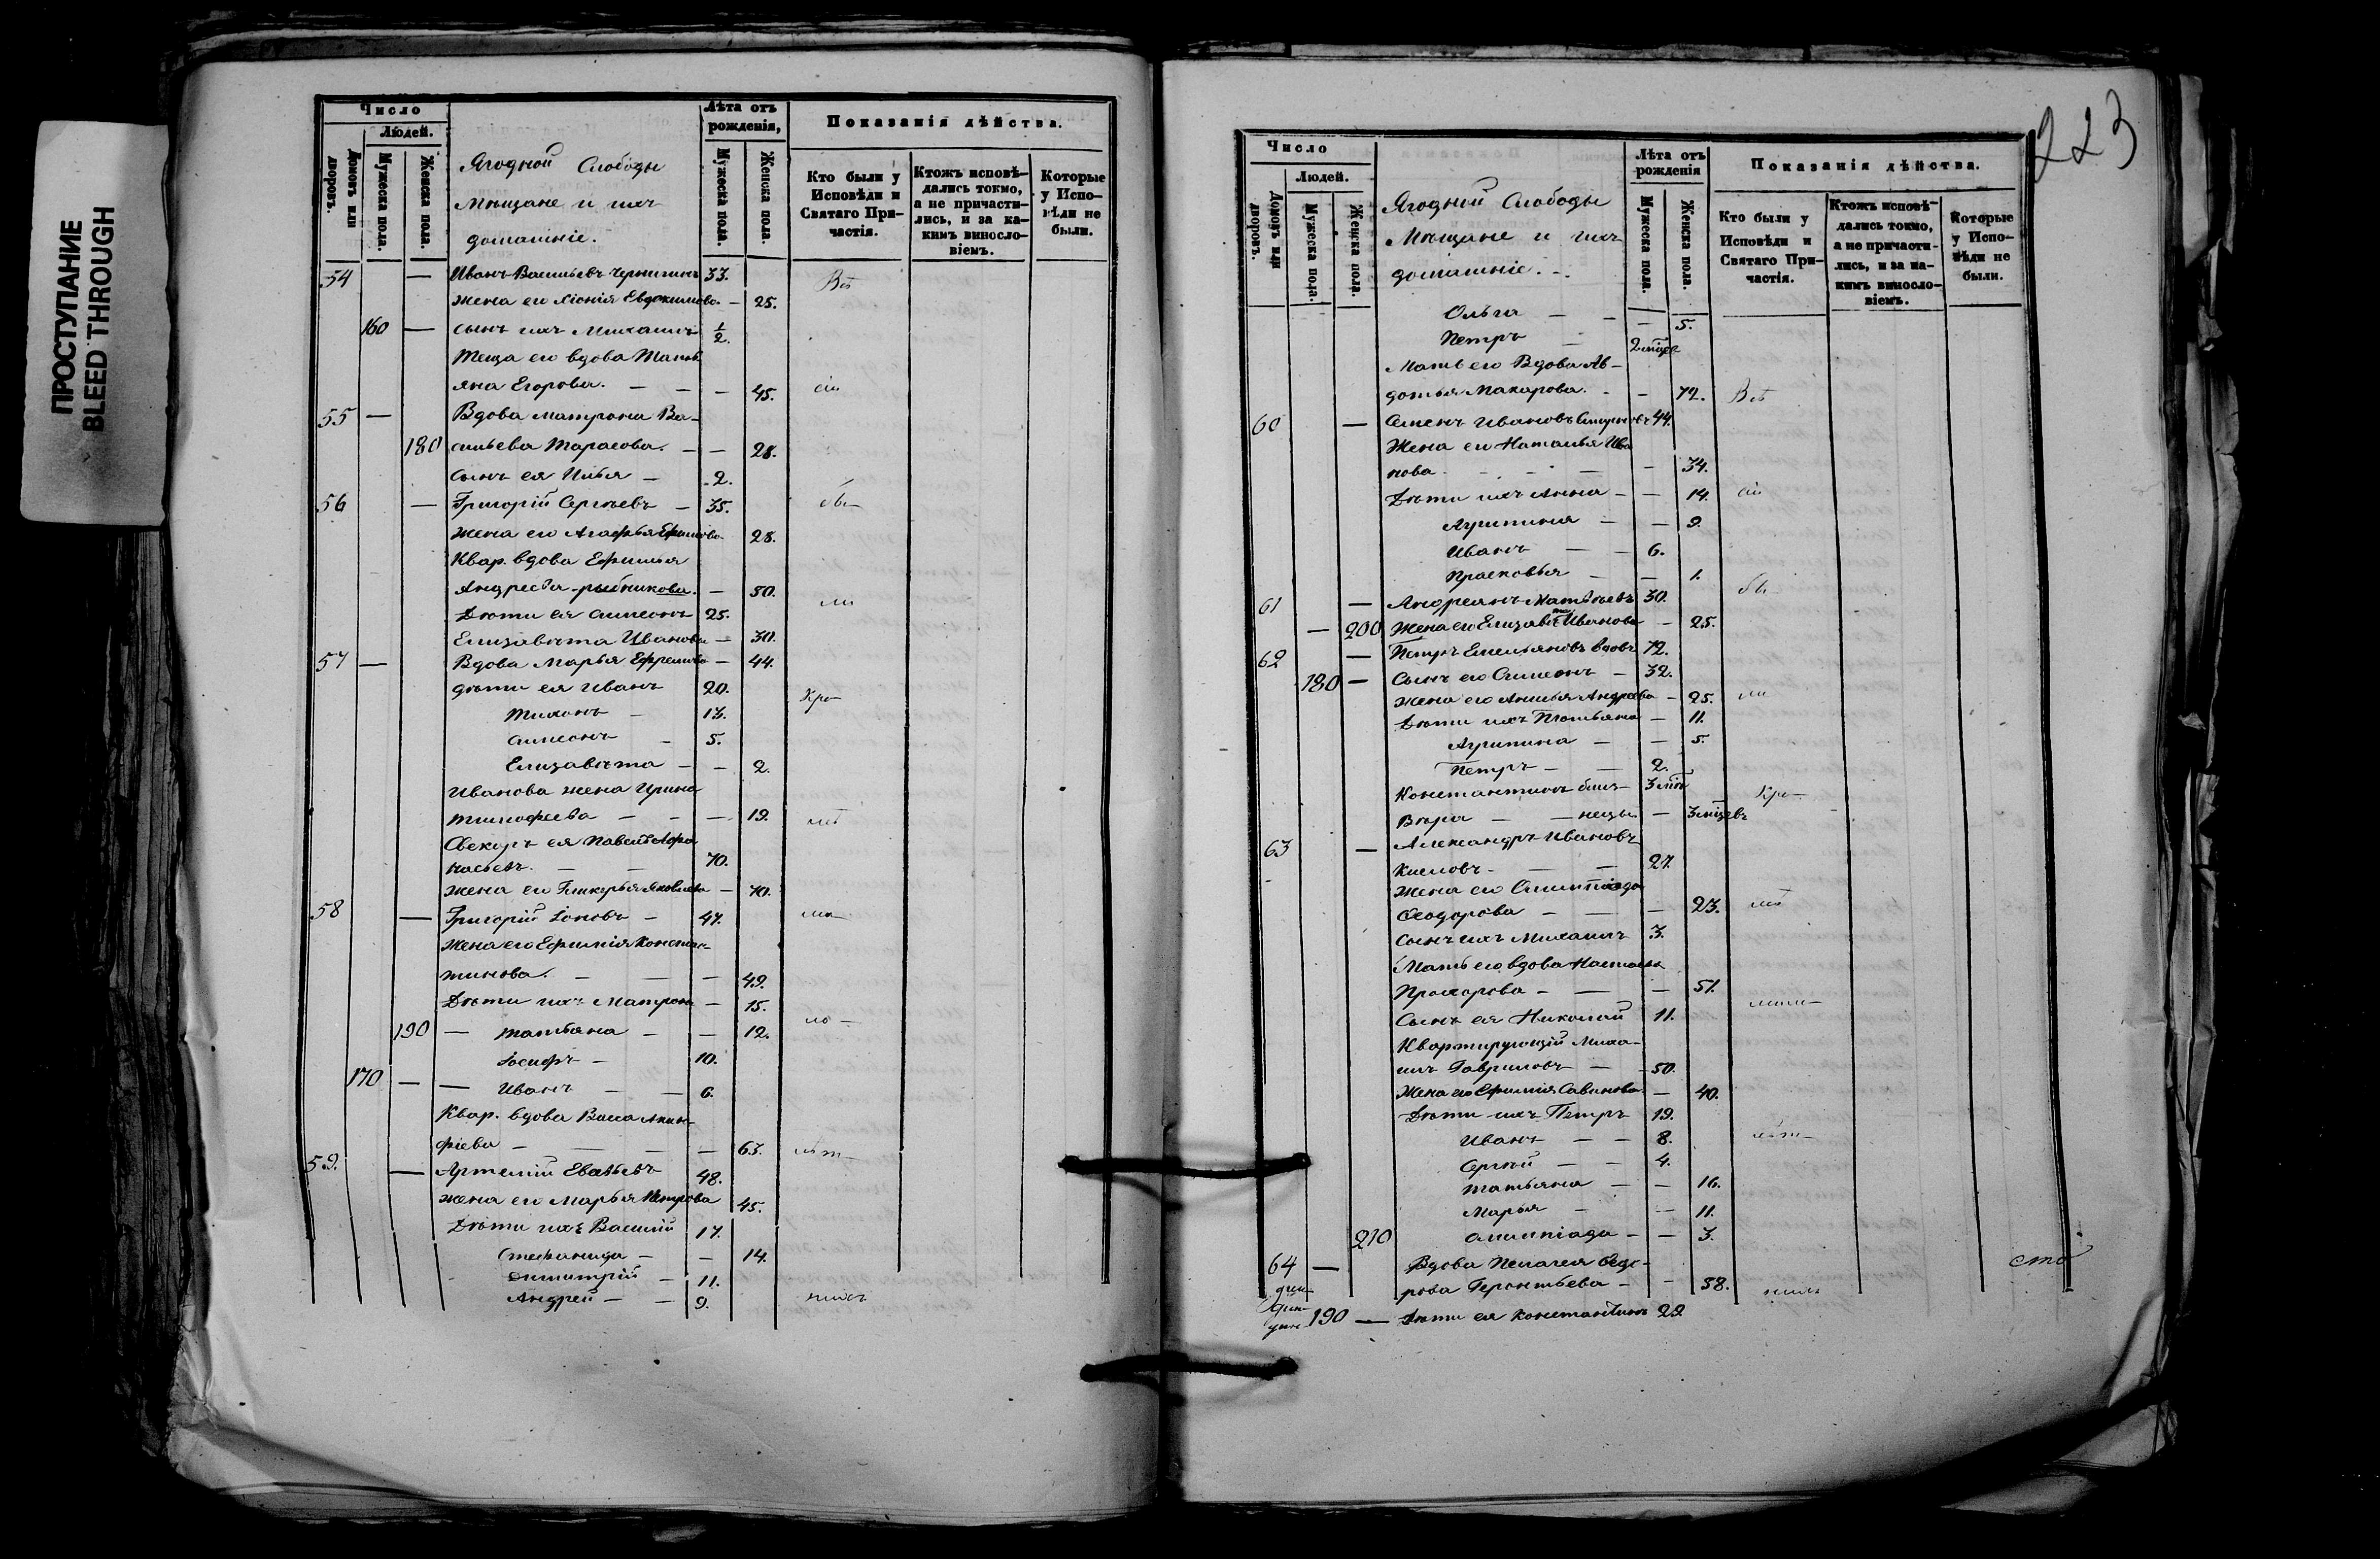 ПРОСТУПАНИЕ
BLEED THROUGH
Число
Людей.
Домовъ или дворовъ.
Мужеска пола.
Женска пола.
Ягодной Слободы
Мѣщане и ихъ
домашніе.
Лѣта отъ рожденія,
Мужеска пола.
Женска пола.
Показанія дѣйства.
Кто были у Исповѣди и Святаго Причастія.
Ктожъ исповѣдались токмо, а не причастились, и за какимъ винословіемъ.
Которые у Исповѣди не были.
54 — Иванъ Васильевъ 33.
жена его Евдокимова — 25.
160 — сынъ ихъ Михаилъ 1/2.
Теща его вдова Тать
яна Егорова. — — — 45.
55 — Вдова Матрона Ва-
180 сильева Тарасова. — — 28.
Сынъ ея Илья — 2.
56 — Григорій Сергѣевъ — 35.
жена его Агафья Ефимова 28.
Квар. вдова Ефимья
Андреева Рыбникова. — 50.
Дѣти ея Симеонъ 25.
Елизавѣта Иванова — 30.
57 — Вдова Марья Ефремова — 44.
дѣти ея Иванъ 20.
Тихонъ — 13.
Симеонъ — 5.
Елизавѣта — — 2.
Иванова жена Ирина
Тимофеева — — — 19.
Свекоръ ея Павелъ Афа
насьевъ. — — 70.
жена его Гликерья Яковлева — 70.
58 — Григорій Іоновъ — 47.
жена его Ефимія Констан-
тинова. — — — 49.
Дѣти ихъ Матрона — 15.
190 — Татьяна — — 12.
Іосифъ — 10.
170 — — Иванъ — — 6.
Квар. вдова Васса Акин-
фіева — — — — 63.
59. — Артемій Евсѣевъ 48.
жена его Марья Петрова 45.
Дѣти ихъ Василій 17.
Стефанида — — 14.
Димитрій — 11.
Андрей — — 9.
223
Число
Людей.
Домовъ или дворовъ.
Мужеска пола.
Женска пола.
Ягодной Слободы
Мѣщане и ихъ
домашніе. —
Лѣта отъ рожденія
Мужеска пола.
Женска пола.
Показанія дѣйства.
Кто были у Исповѣди и Святаго Причастія.
Ктожъ исповѣдались токмо, а не причастились, и за какимъ винословіемъ.
Которые у Исповѣди не были.
Ольга — — — 5.
Петръ — 2
Мать его Вдова Ав-
дотья Макарова. — — 72.
60 — Семенъ Ивановъ 44.
Жена его Наталья Ива
нова — — — — 34.
Дѣти ихъ Анна — — 14.
Агрипина — — 9.
Иванъ — — 6.
Прасковья — — 1.
61 — Андреянъ Матвѣевъ 30.
— 200 Жена его Елизавета Иванова — 25.
62 — Петръ Емельяновъ вдовъ 72.
180 — Сынъ его Симеонъ — 32.
жена его Андреева — 25.
Дѣти ихъ Татьяна — 11.
Агрипина — — 5.
Петръ — — 2.
Константинъ близ- 3
Вѣра — — нецы — 3
63 — Александръ Ивановъ
— — 27.
жена его Олимпіада
Ѳеодорова — — — 23.
Сынъ ихъ Михаилъ 3.
Мать его вдова Настасья
Прохорова — — — 51.
Сынъ ея Николай 11.
Квартирующій Миха-
илъ Гавриловъ — — 50.
Жена его Ефимія Савинова — 40.
Дѣти ихъ Петръ 19.
Иванъ — — 8.
Сергѣй — — 4.
Татьяна — — 16.
Марья — — 11.
210 Олимпіада — — 3.
64 — Вдова Пелагея Ѳедо-
рова Геронтьева — — 58.
190 — Дѣти ея Константинъ 22